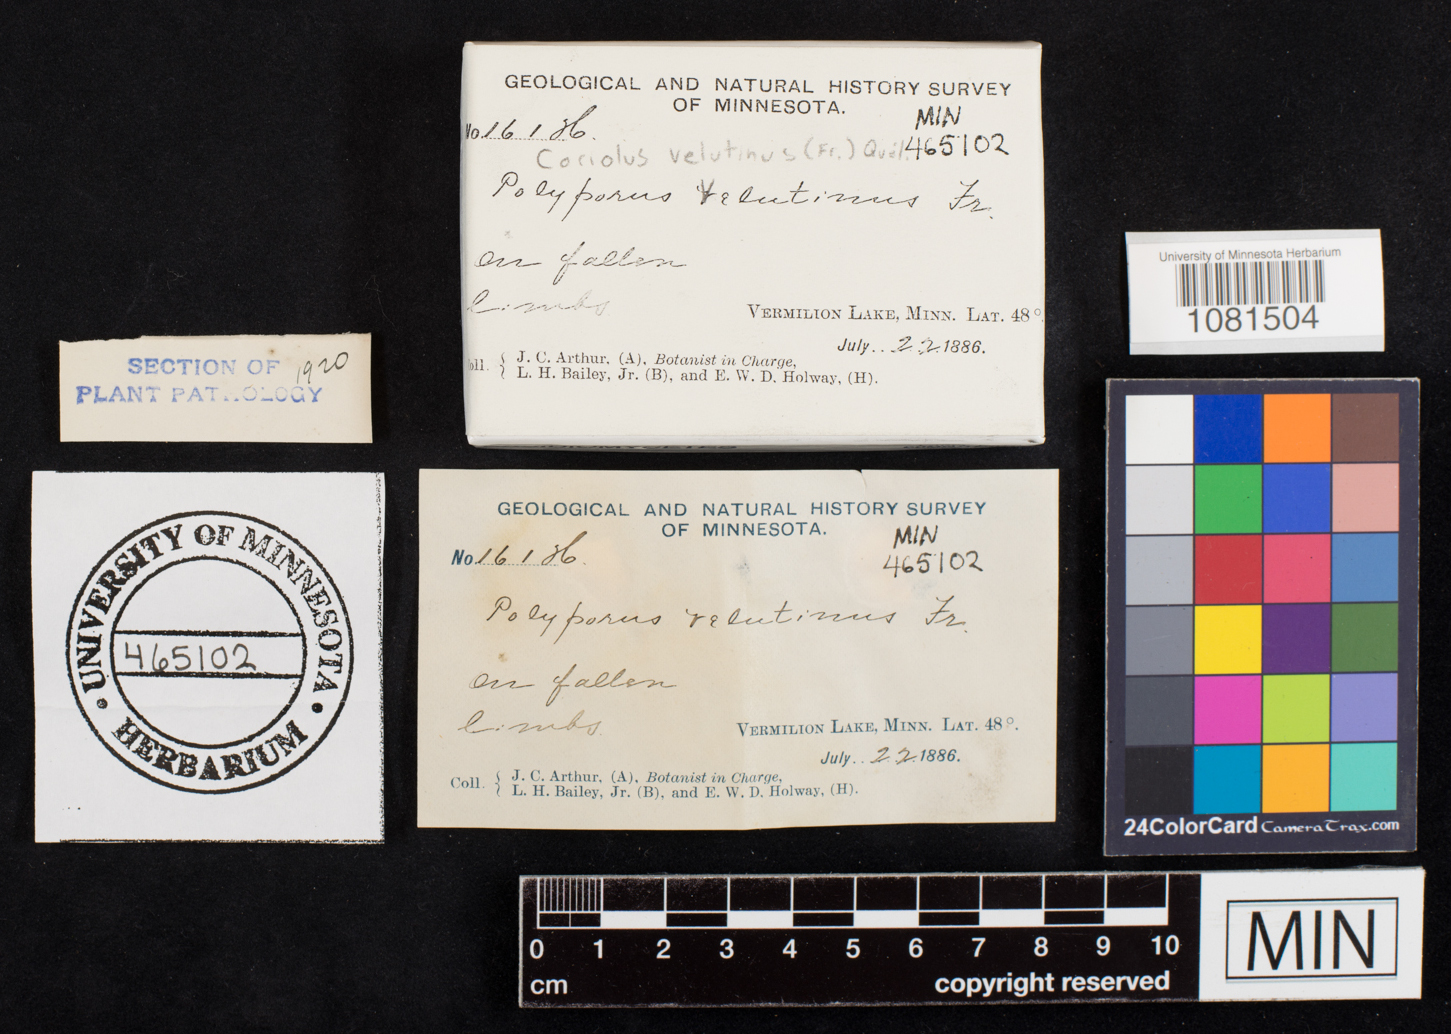 GEOLOGICAL AND NATURAL HISTORY SURVEY
OF MINNESOTA.
No. 161 H.
MIN
465102
Coriolus velutinus (Fr.) Quél.
Polyporus velutinus Fr.
on fallen
limbs
VERMILION LAKE, MINN. LAT. 48°.
July.. 22 1886.
oll. { J. C. Arthur, (A), Botanist in Charge,
L. H. Bailey, Jr. (B), and E. W. D. Holway, (H).
University of Minnesota Herbarium
1081504
SECTION OF 1920
PLANT PATHOLOGY
UNIVERSITY OF MINNESOTA
465102
HERBARIUM
GEOLOGICAL AND NATURAL HISTORY SURVEY
OF MINNESOTA.
No. 161 H.
MIN
465102
Polyporus velutinus Fr.
on fallen
limbs
VERMILION LAKE, MINN. LAT. 48°.
July.. 22 1886.
Coll. { J. C. Arthur, (A), Botanist in Charge,
L. H. Bailey, Jr. (B), and E. W. D. Holway, (H).
24ColorCard CameraTrax.com
0 1 2 3 4 5 6 7 8 9 10
cm copyright reserved
MIN